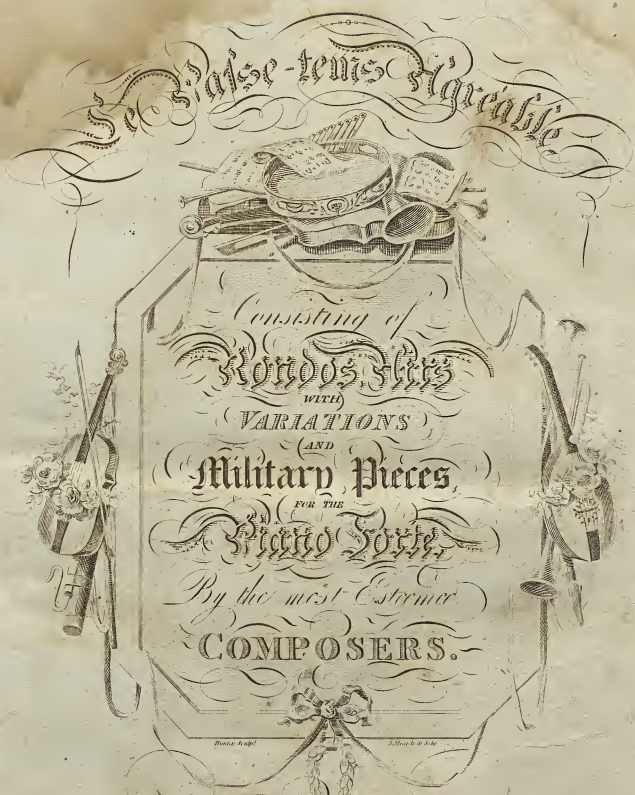 Le Passe-tems Agreable
Consisting of
Rondos, Airs
WITH
VARIATIONS
AND
Military Pieces,
FOR THE
Piano Forte,
By the most Esteemed
COMPOSERS.
Sculpt